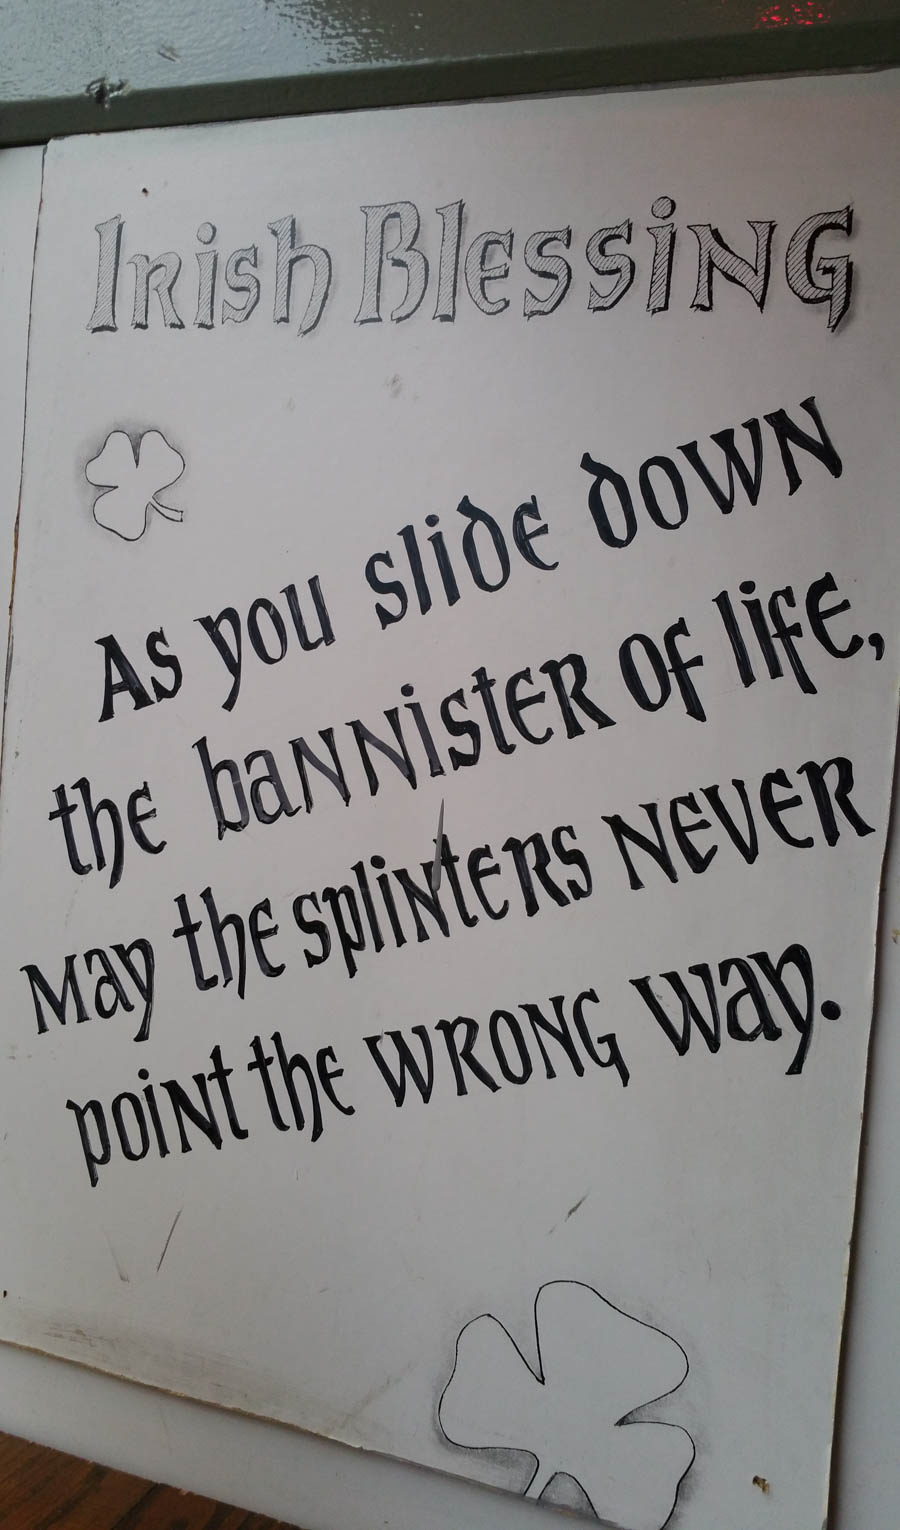 Irish Blessing
As you slide down
the bannister of life,
May the splinters never
point the wrong way.